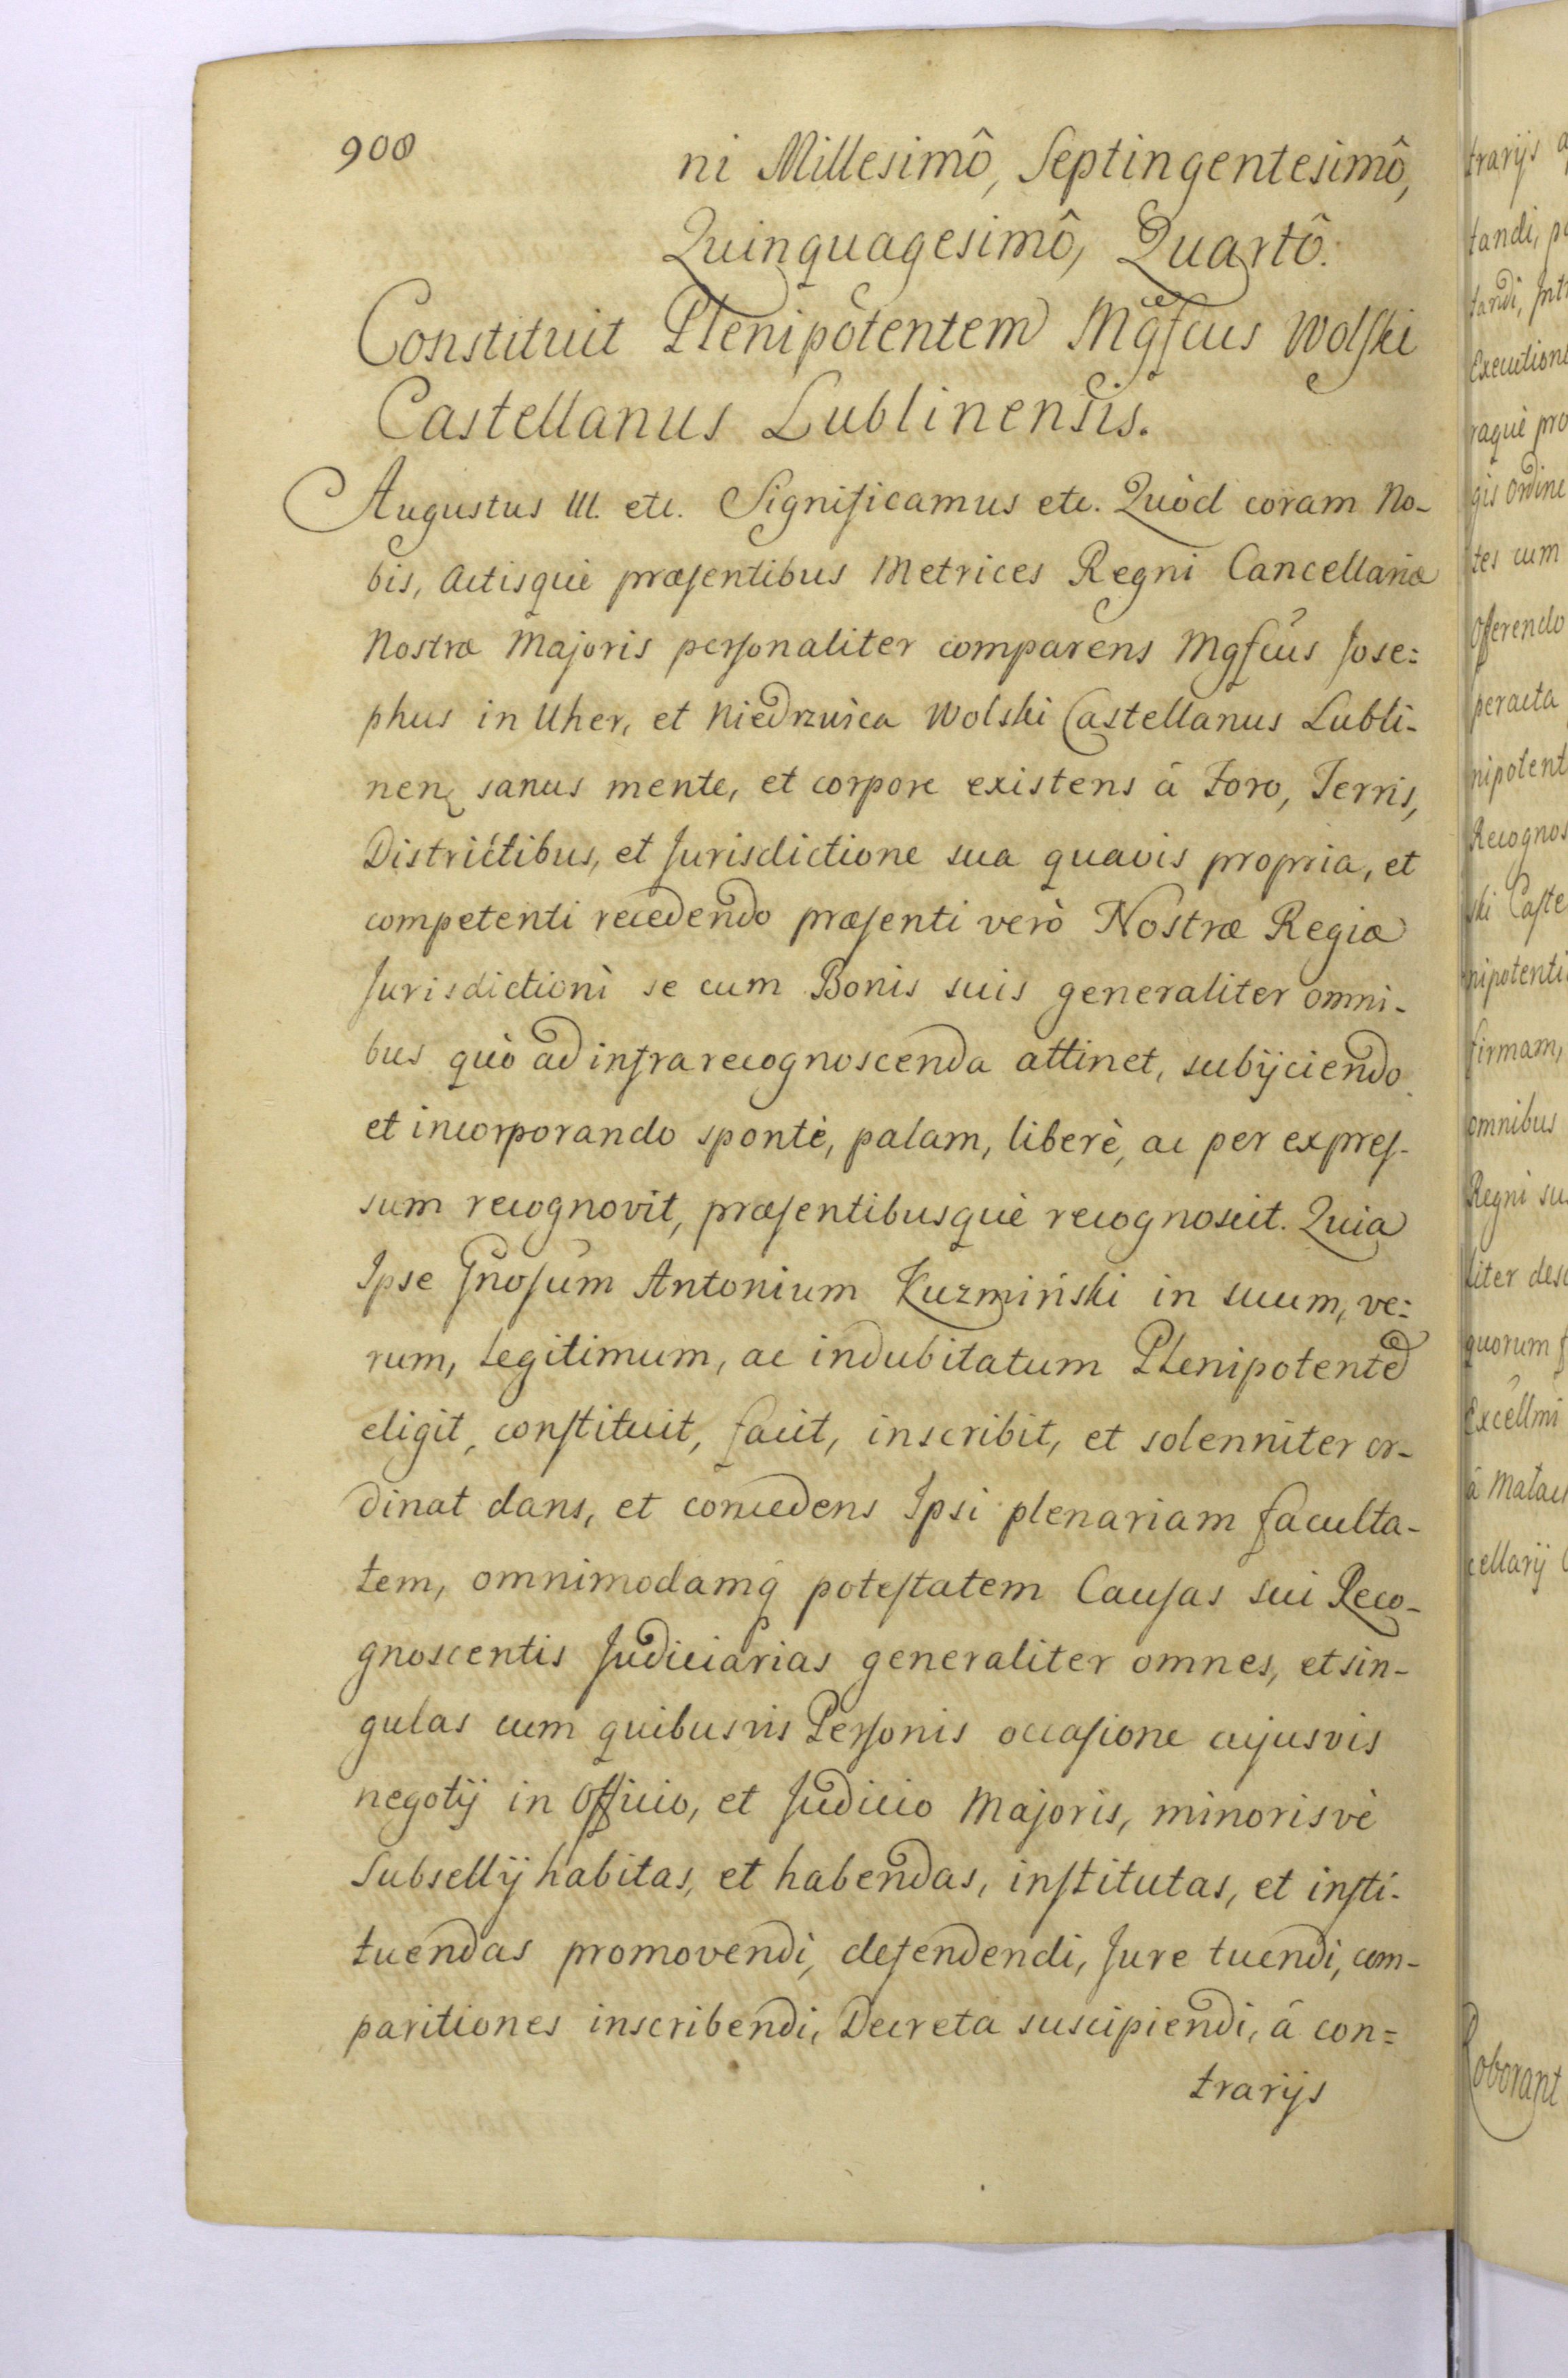 908
ni Millesimô, Septingentesimô,
Quinquagesimô, Quartô.
Constituit Plenipotentem Mgfcus Wolski
Castellanus Lublinensis.
Augustus III. etc. Significamus etc. Quòd coram No-
bis, Actisquè præsentibus Metrices Regni Cancellariæ
Nostræ Majoris personaliter comparens Mgfcus Jose=
phus in Uher, et Niedrzwica Wolski Castellanus Lubli-
nen sanus mente, et corpore existens â Foro, Terris,
Districtibus, et Jurisdictione sua quavis propria, et
competenti recedendo præsenti verò Nostræ Regiæ
Jurisdictioni se cum Bonis suis generaliter omni-
bus quò ad infrarecognoscenda attinet, subijciendo
et incorporando spontè, palam, liberè, ac per expres-
sum recognovit, præsentibusquè recognoscit. Quia
Ipse Gnosum Antonium Kuzmiński in suum, ve=
rum, legitimum, ac indubitatum Plenipotente
eligit, constituit, facit, inscribit, et solenniter or-
dinat dans, et concedens Ipsi plenariam faculta-
tem, omnimodamq potestatem Causas sui Reco-
gnoscentis Judiciarias generaliter omnes, et sin-
gulas cum quibusvis Personis occasione cujusvis
negotij in Officio, et Judicio Majoris, minorisvè
Subsellij habitas, et habendas, institutas, et insti-
tuendas promovendi, defendendi, Jure tuendi, com-
paritiones inscribendi, Decreta suscipiendi, â con=
trarijs
trarijs
tandi,
tandi,
raquè pro
gis ordine
tes cum
offerendo
peracta
nipotent
Recognos
ski Caste
nipotenti
firmam,
omnibus
Regni su
liter desc
quorum
Excellmi
cellarij
Roborant